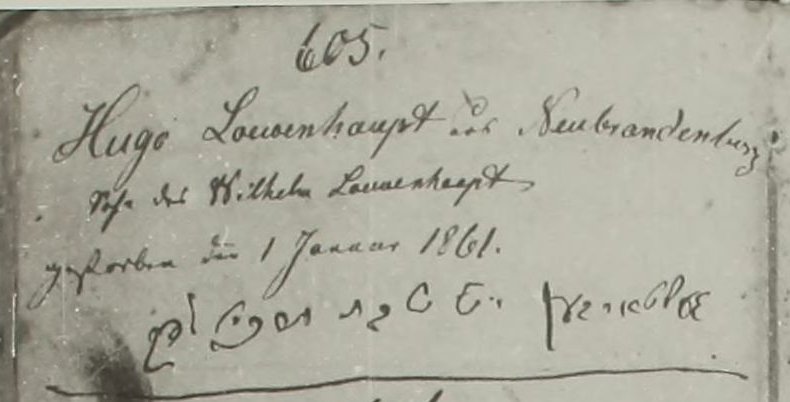 605.
Hugo Louwenhaupt aus Neubrandenburg
Sohn des Wilhelm Louwenhaupt
gestorben den 1 Januar 1861.